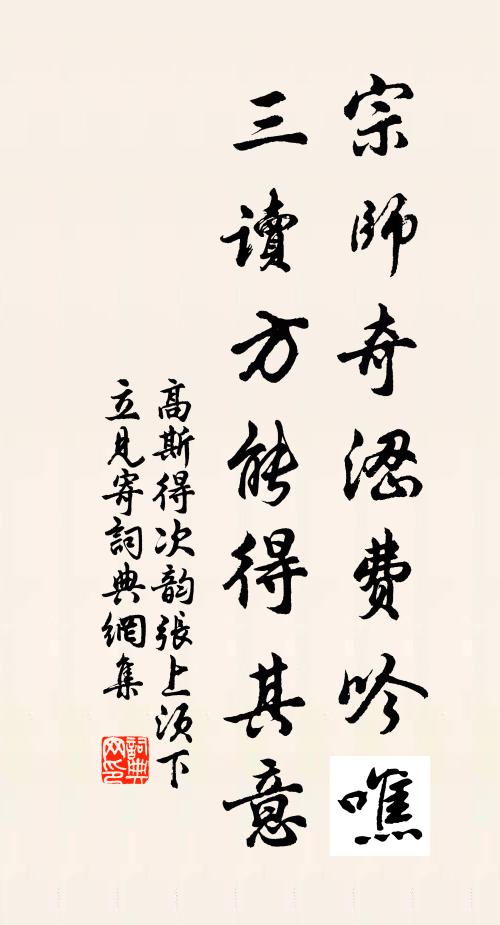 宗師奇澀費吟噍
三讀方能得其意
高斯得次韵張上須下
立見寄詞典網集
詞典
网印